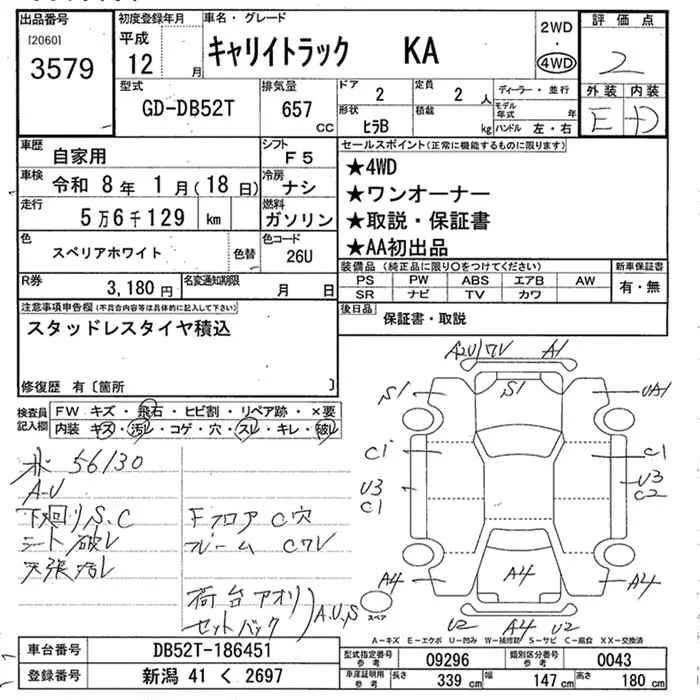 出品番号
[2060]
3579
初度登録年月
平成
12 月
車名・グレード
キャリイトラック KA
2WD
・
4WD
評価点
2
外装 内装
E D
型式
GD-DB52T
排気量
657 CC
ドア
2
定員
2 人
ディーラー・並行
形状
ヒラB
積載
kg
モデル年式 年
ハンドル 左・右
車歴
自家用
シフト
F5
車検
令和 8年 1月(18日)
冷房
ナシ
走行
5万6千129 km
燃料
ガソリン
色
スペリアホワイト
色替
色コード
26U
R券
3,180円
名変通知期限
月 日
セールスポイント(正常に機能するものに限ります)
★4WD
★ワンオーナー
★取説・保証書
★AA初出品
装備品(純正品に限り○をつけてください)
新車保証書
PS PW ABS エアB AW
有・無
SR ナビ TV カワ
後日品
保証書・取説
注意事項申告欄(不具合内容等は具体的に記入して下さい)
スタッドレスタイヤ積込
修復歴 有〔箇所 〕
検査員記入欄
FW キズ・飛石・ヒビ割・リペア跡・×要
内装 キズ・汚レ・コゲ・穴・スレ・キレ・破レ
56130
A-U
下回りS.C
シート破レ
天張汚レ
Fフロア C穴
フレーム Cワレ
荷台アオリ
セットバック
A.U.S
A2U1ワレ A1
S1 S1 UA1
C1 C1
U3 C1
U3 C2
A4 A4 A4
U2 A4 U2
スペア
A-キズ E-エクボ U-凹み W-補修跡 S-サビ C-腐食 XX-交換済
車台番号
DB52T-186451
登録番号
新潟 41 く 2697
型式指定番号
参考
09296
類別区分番号
参考
0043
車庫証明用
参考
長さ
339 cm
幅
147 cm
高さ
180 cm